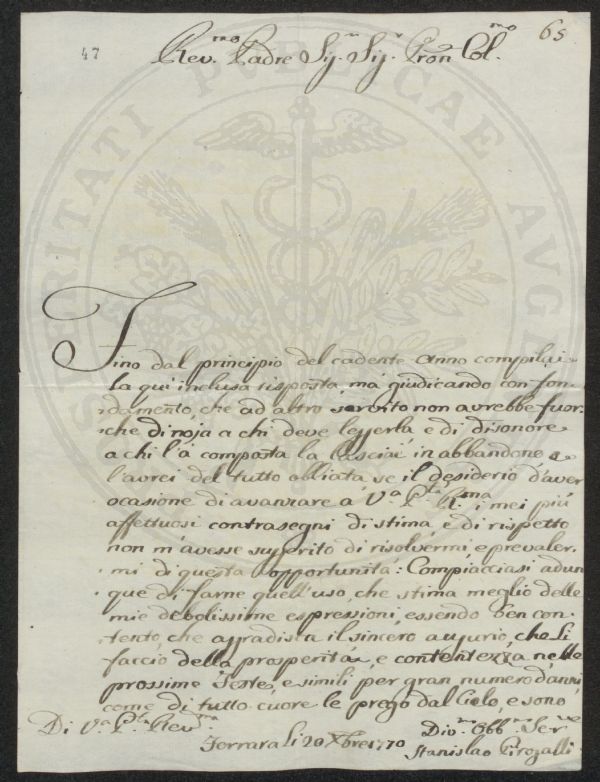 47
65
Rev.mo Padre Sig.r Sig.r Pron Col.mo
Fino dal principio del cadente Anno compilai
la qui inclusa risposta, ma giudicando con fon-
damento, che ad altro servito non avrebbe fuor-
che di noja a chi deve leggerla e di disonore
a chi l'à composta la lasciai in abbandono e
l'avrei del tutto obliata se il desiderio d'aver
ocasione di avanzare a V.a P.tà R.ma i miei più
affettuosi contrasegni di stima, e di rispetto
non m'avesse suggerito di risolvermi, e prevaler-
mi di questa opportunità: Compiacciasi adun-
que di farne quell'uso, che stima meglio delle
mie debolissime espressioni, essendo ben con-
tento, che aggradisca il sincero augurio, che Li
faccio della prosperità, e contentezza nelle
prossime Feste, e simili per gran numero d'anni
come di tutto cuore le prego dal Cielo, e sono
Di V.a P.tà Rev.ma
Div.mo Obb.mo Ser.re
Ferrara Li 20 Xbre 1770
Stanislao
VERITATI PUBLICAE AUGE